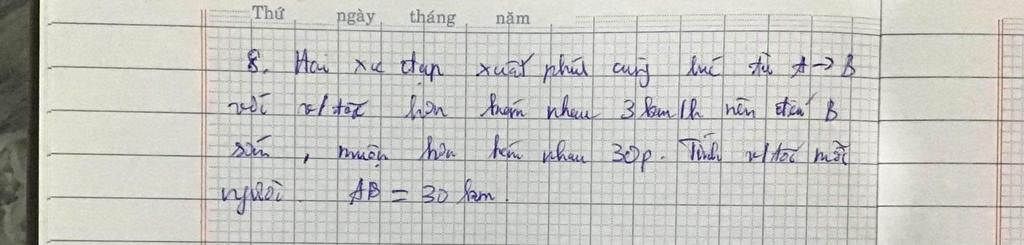 Thứ ngày tháng năm
8. Hai xe đạp xuất phát cùng lúc từ A → B
với v/tốc hơn kém nhau 3 km/h nên đến B
sớm, muộn hơn kém nhau 30p. Tính v/tốc mỗi
người. AB = 30 km.